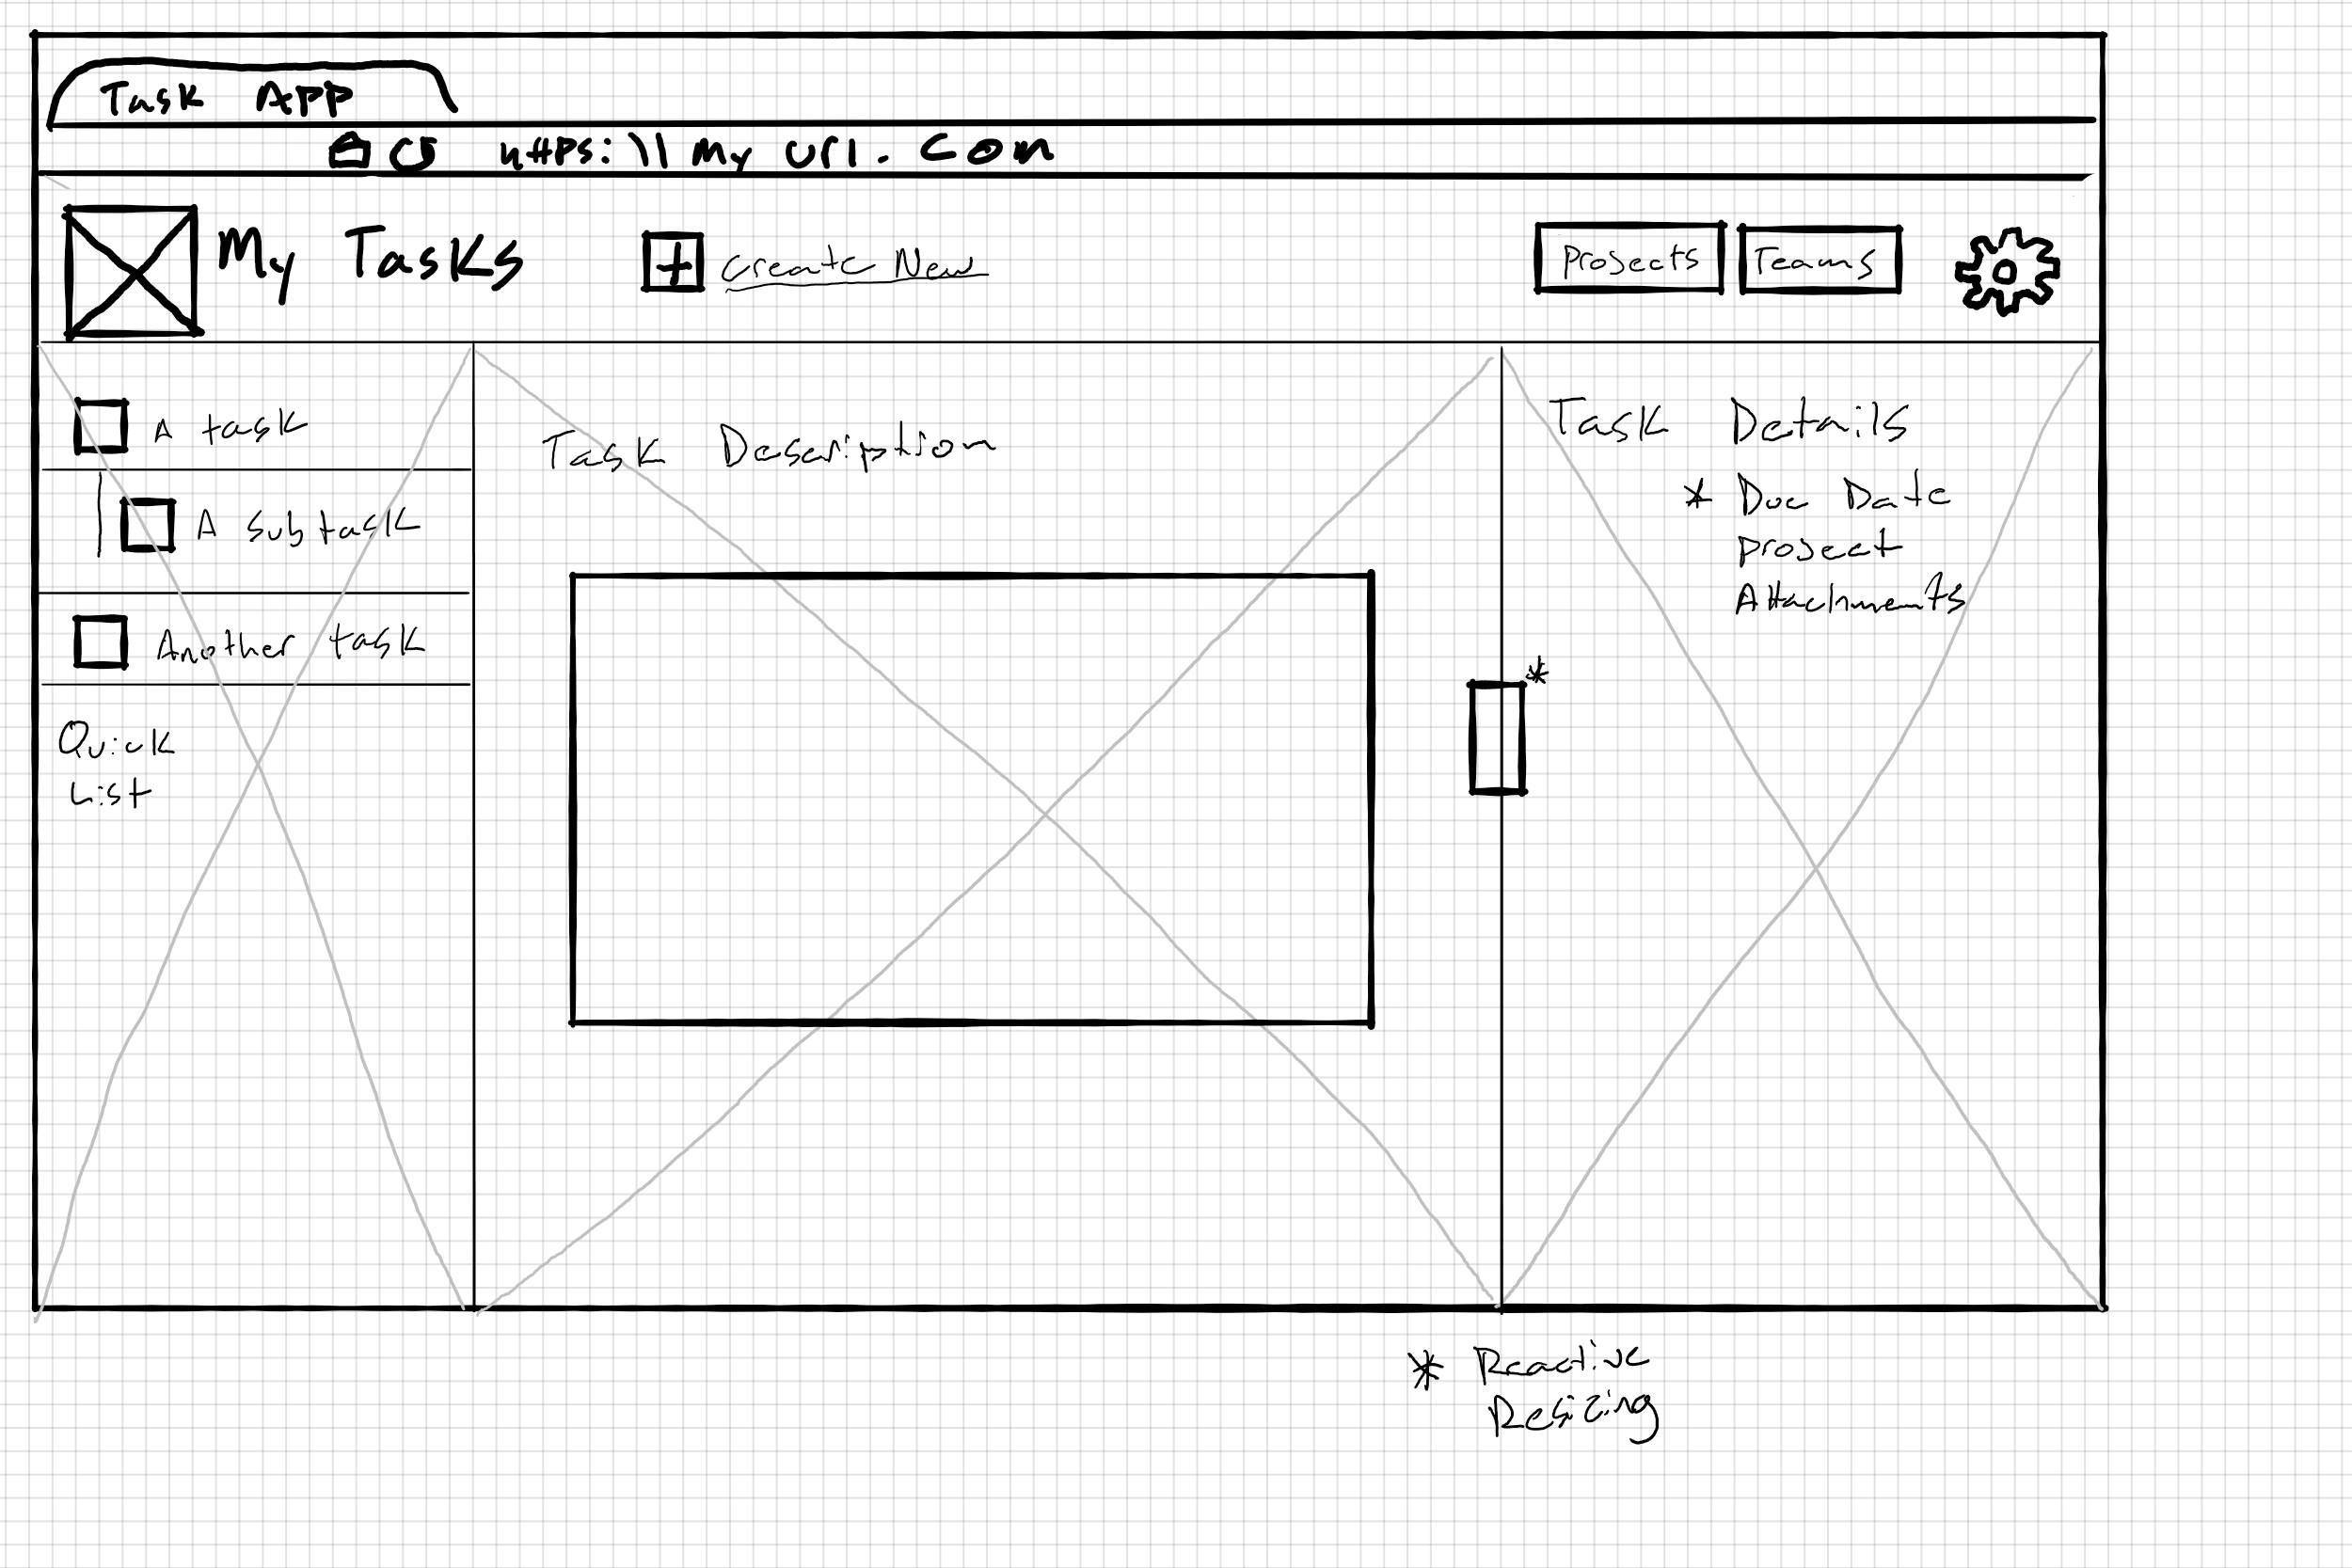 Task App
https:\\my url.com
My Tasks
+ Create New
Projects
Teams
A task
A subtask
Another task
Quick
List
Task Description
Task Details
* Due Date
Project
Attachments
*
* Reactive
Resizing